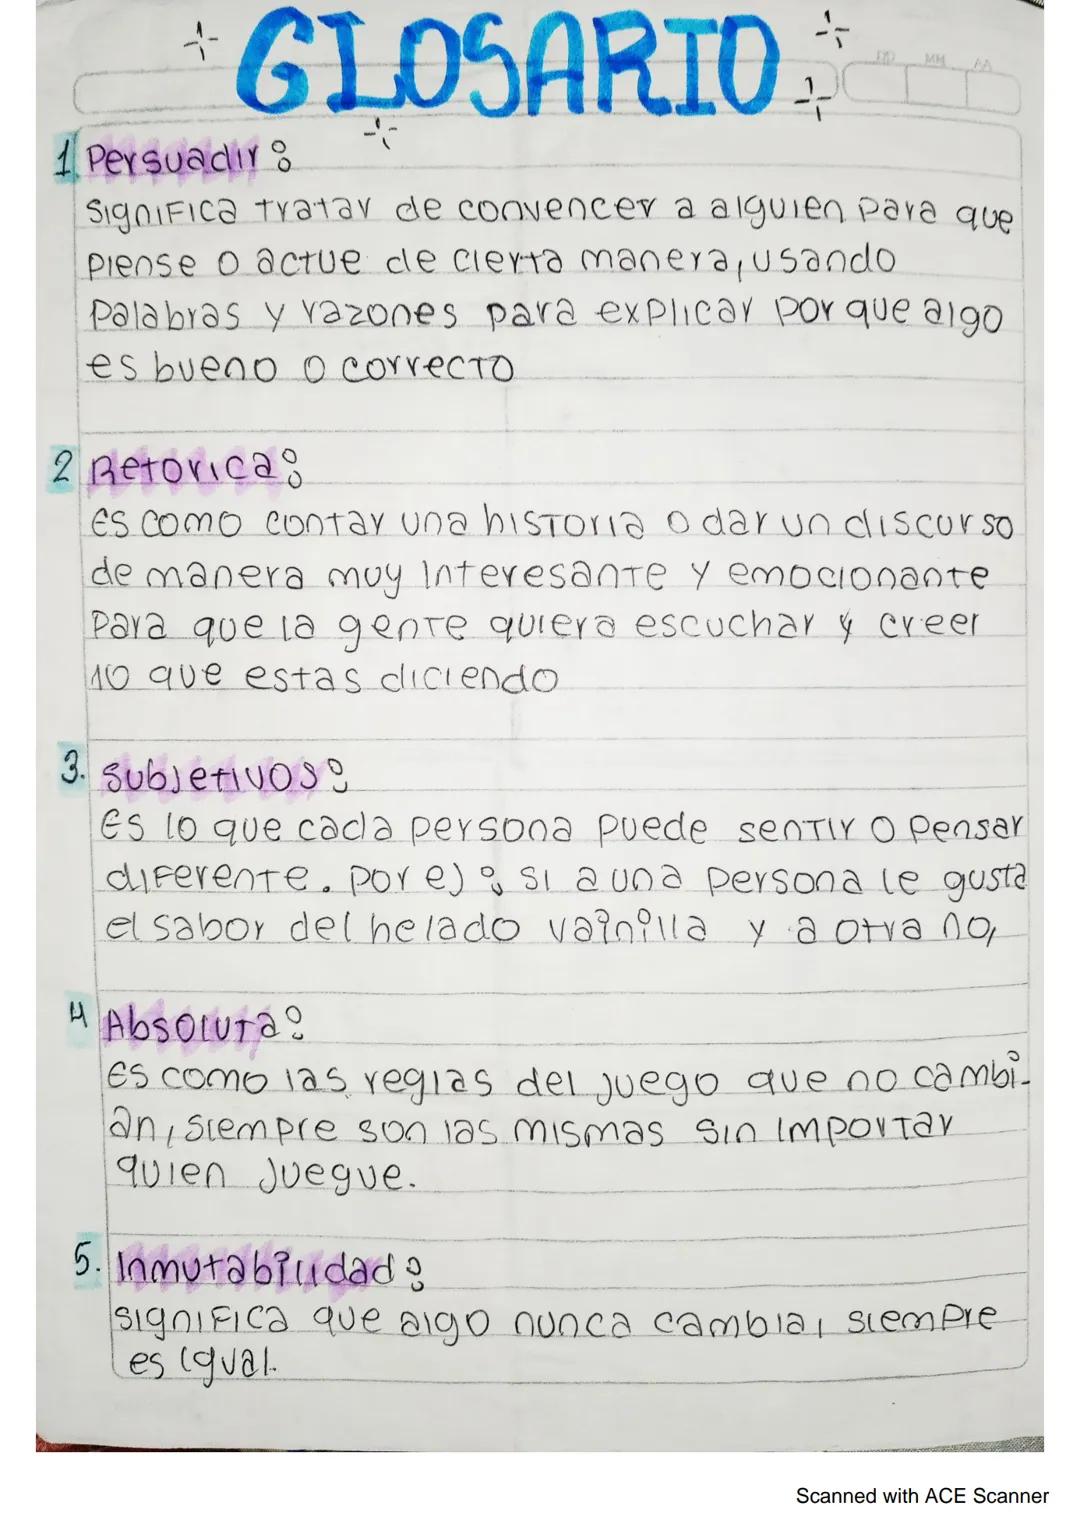 GLOSARIO
DD MM AA
1 Persuadir:
Significa tratar de convencer a alguien para que
piense o actue de cierta manera, usando
Palabras y razones para explicar por que algo
es bueno o correcto
2 Retorica:
es como contar una historia o dar un discurso
de manera muy interesante y emocionante
para que la gente quiera escuchar y creer
lo que estas diciendo
3. Subjetivos:
Es lo que cada persona puede sentir o pensar
diferente. por ej: si a una persona le gusta
el sabor del helado vainilla y a otra no,
4 Absoluta:
Es como las reglas del juego que no cambi-
an, siempre son las mismas sin importar
quien juegue.
5. Inmutabilidad:
significa que algo nunca cambia, siempre
es igual.
Scanned with ACE Scanner